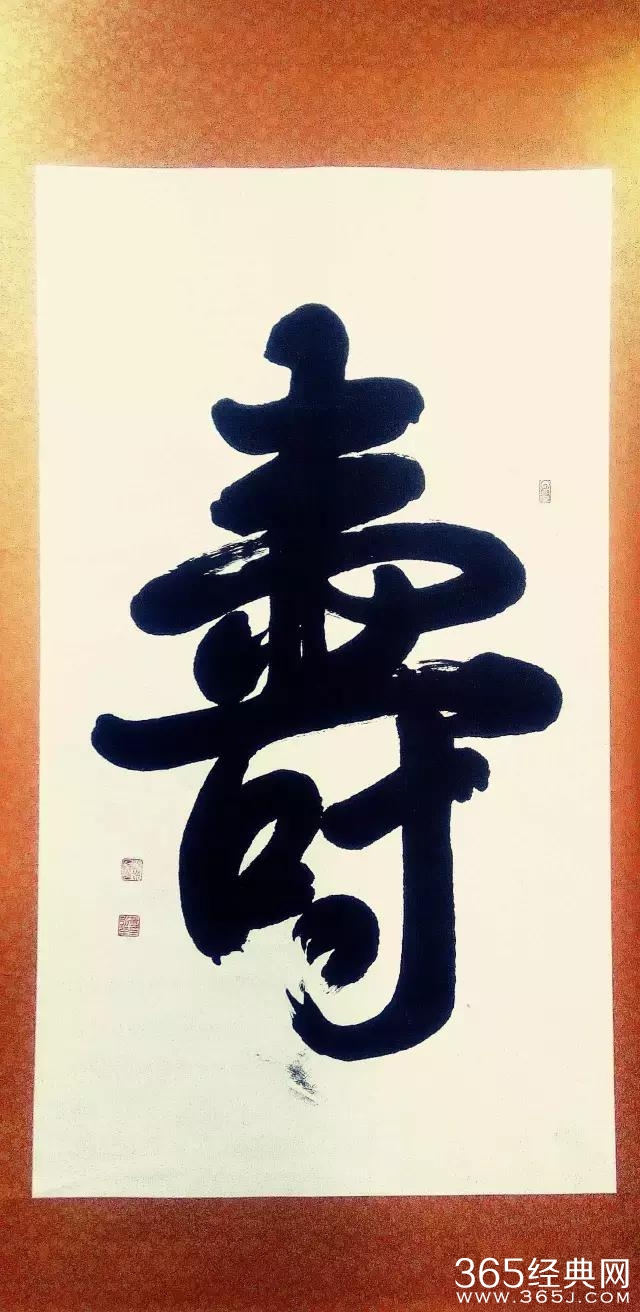 壽
365经典网
WWW.365J.COM